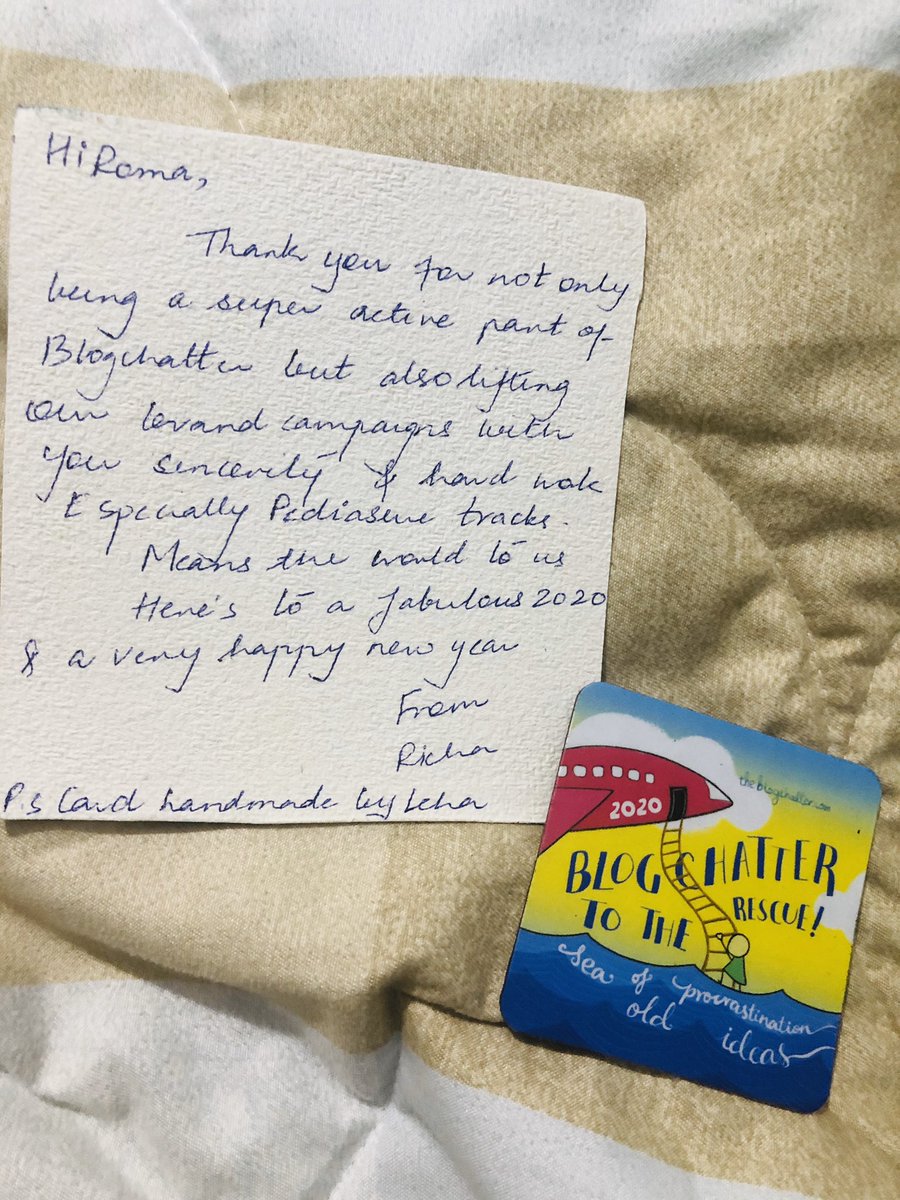 Hi Roma,
Thank you for not only
being a super active part of
Blogchatter but also lifting
our brand campaigns with
you sincerity & hard work
Especially Pediasure tracks.
Means the world to us
Here's to a fabulous 2020
& a very happy new year
From
Richa
P.s Card handmade by
theblogchatter.com
2020
BLOGCHATTER
TO THE RESCUE!
sea of procrastination
old ideas